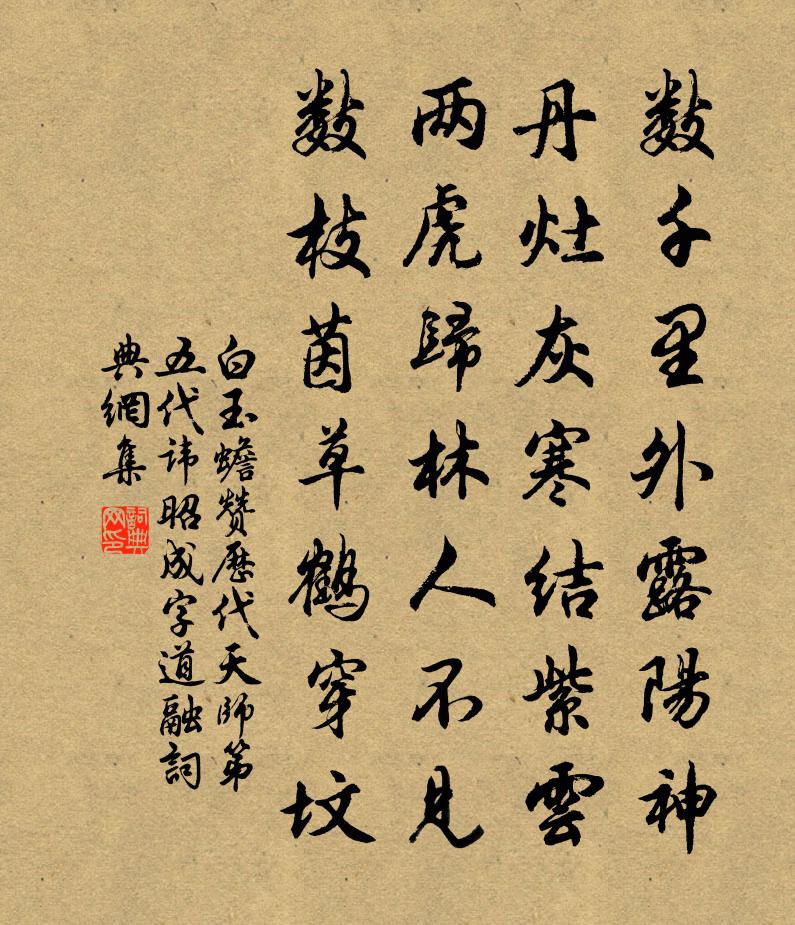 数千里外露陽神
丹灶灰寒結紫雲
两虎歸林人不見
数枝茵草鶴穿坟
白玉蟾赞歷代天師第
五代諱昭成字道融詞
典網集
詞典网印